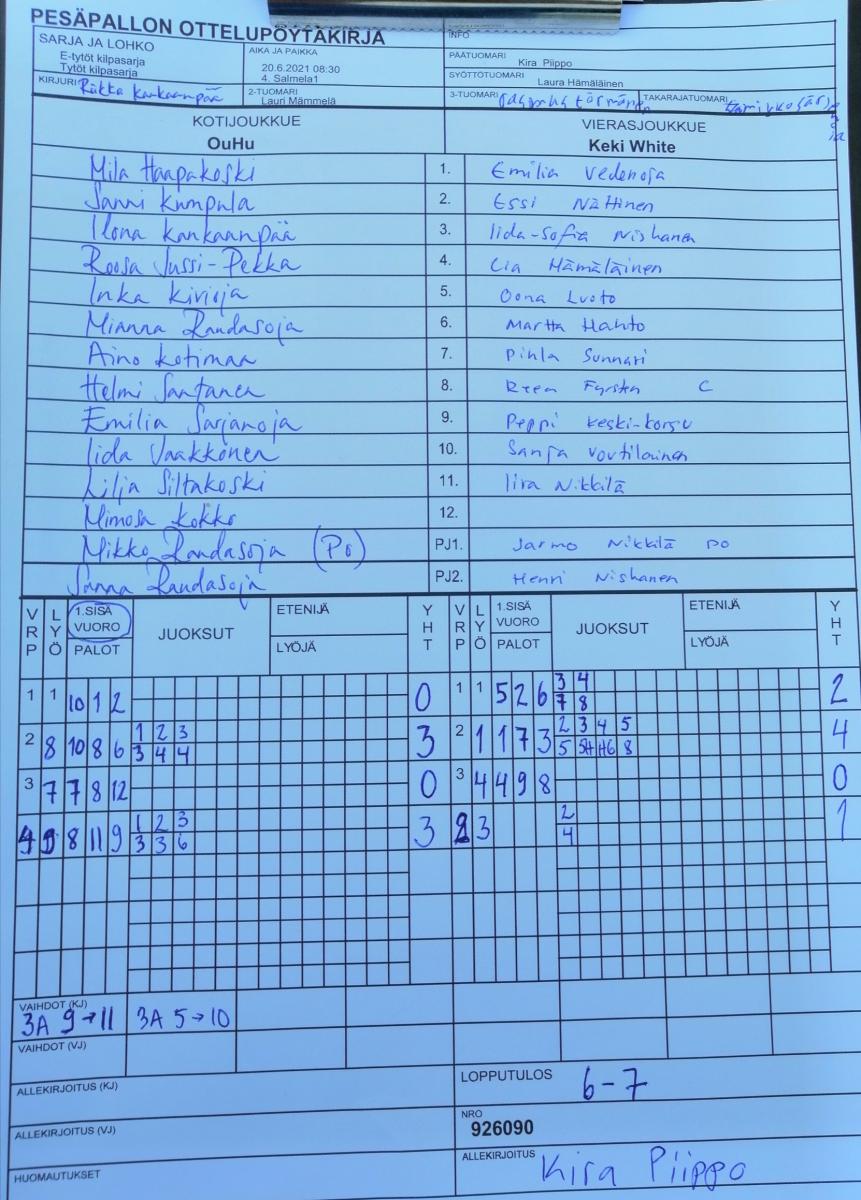 PESÄPALLON OTTELUPÖYTÄKIRJA
INFO
SARJA JA LOHKO
E-tytöt kilpasarja
Tytöt kilpasarja
AIKA JA PAIKKA
20.6.2021 08:30
4. Salmela1
PÄÄTUOMARI
Kira Piippo
SYÖTTÖTUOMARI
Laura Hämäläinen
KIRJURI Riikka Kankaanpää
2-TUOMARI
Lauri Mämmelä
3-TUOMARI
TAKARAJATUOMARI
KOTIJOUKKUE
OuHu
VIERASJOUKKUE
Keki White
Mila Haapakoski 1. Emilia Vedenoja
Sanni Kumpula 2. Essi Nättinen
Ilona Kankaanpää 3. Iida-Sofia Nishanen
Roosa Jussi-Pekka 4. Lia Hämäläinen
Inka Kivioja 5. Oona Luoto
Mianna Randasoja 6. Martta Hahto
Aino Kotimaa 7. Pihla Sunnari
Helmi Santanen 8. C
Emilia Sarjanoja 9. Peppi Keski-Korsu
Iida Vaakkonen 10. Sanja Voutilainen
Lilja Siltakoski 11. Iira Nikkilä
Mimosa Kokko 12.
Mikko Randasoja (PO) PJ1. Jarmo Nikkilä PO
Sanna Randasoja PJ2. Henri Nishanen
VRP LYÖ 1.SISÄ VUORO PALOT JUOKSUT ETENIJÄ LYÖJÄ YHT VRP LYÖ 1.SISÄ VUORO PALOT JUOKSUT ETENIJÄ LYÖJÄ YHT
3 4
1 1 10 1 2 0 1 1 5 2 6 7 8 2
1 2 3 2 3 4 5
2 8 10 8 6 3 4 4 3 2 1 1 7 3 5 5H H6 8 4
3 7 7 8 12 0 3 4 4 9 8 0
1 2 3 2
4 9 8 11 9 3 3 6 3 3 4 1
VAIHDOT (KJ)
3A 9→11 3A 5→10
VAIHDOT (VJ)
ALLEKIRJOITUS (KJ)
LOPPUTULOS 6-7
ALLEKIRJOITUS (VJ)
NRO
926090
HUOMAUTUKSET
ALLEKIRJOITUS Kira Piippo